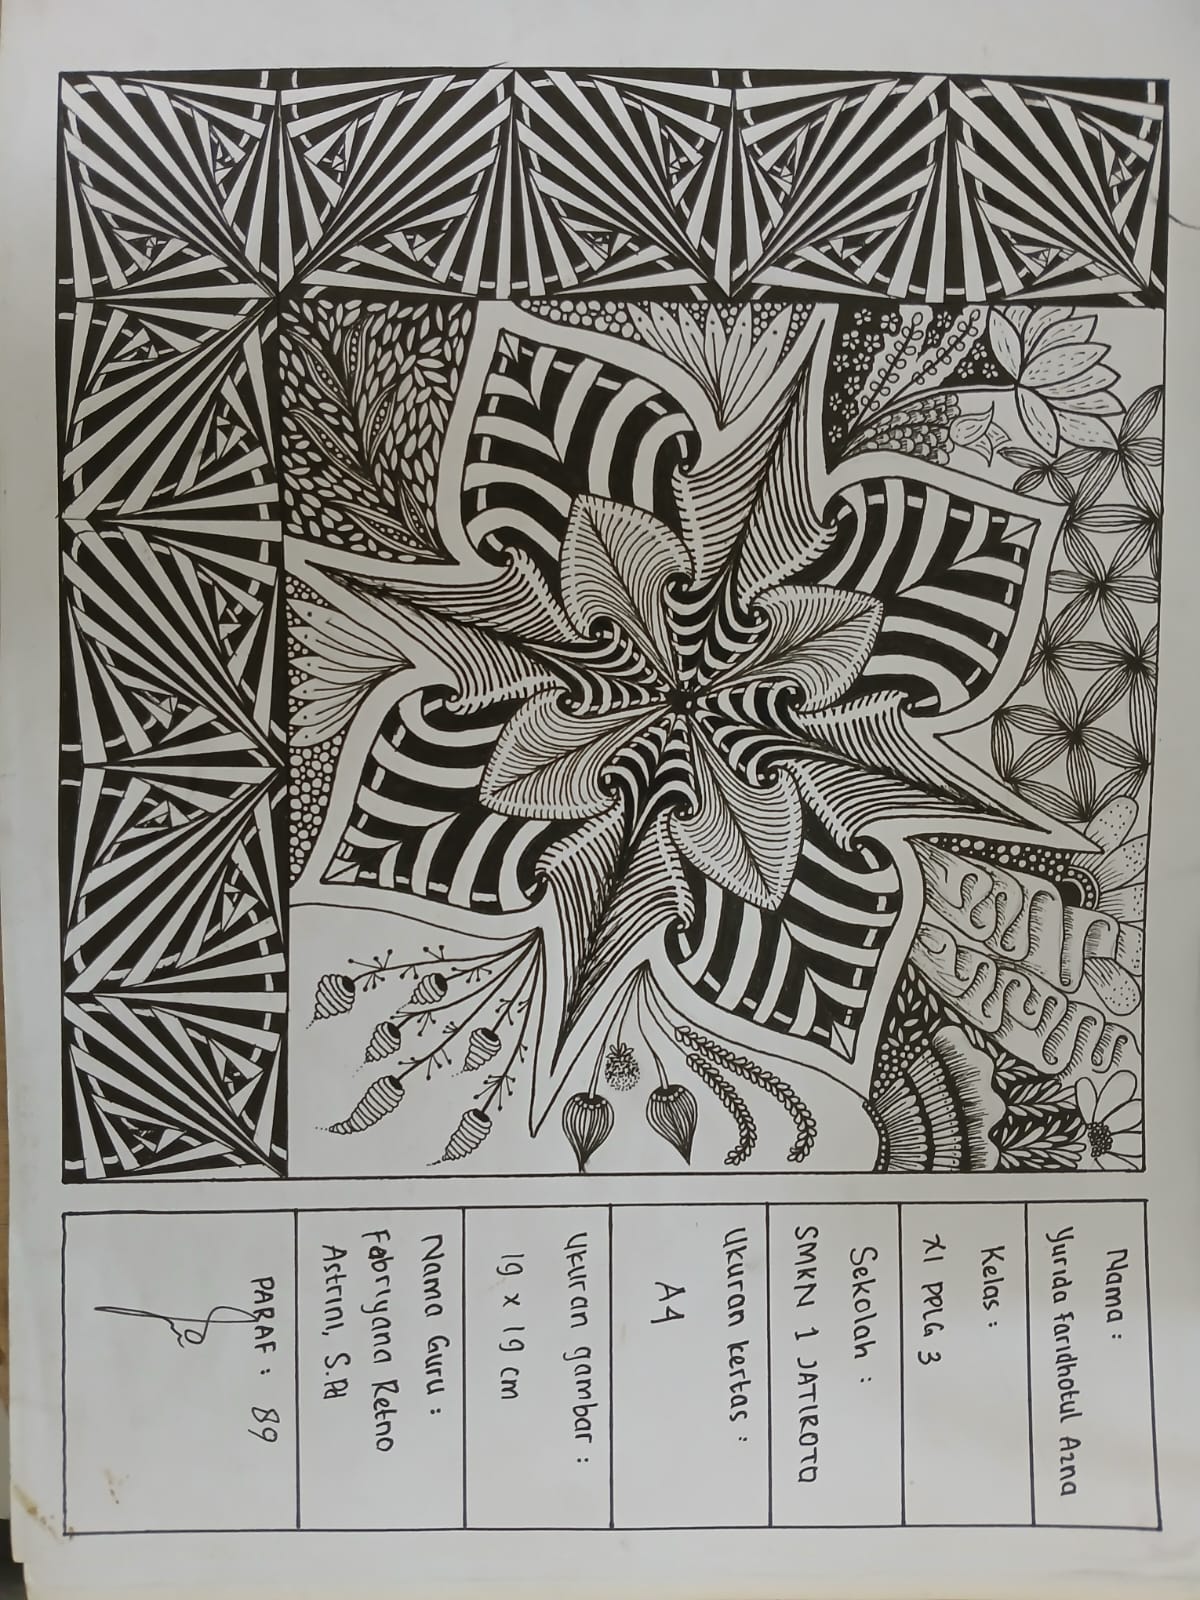 Nama :
Yurida Faridhotul Azna
Kelas :
XI PPLG 3
Sekolah :
SMKN 1 JATIROTO
Ukuran kertas :
A4
Ukuran gambar :
19 x 19 cm
Nama Guru :
Fabriyana Retno
Astrini, S.Pd
PARAF : 89